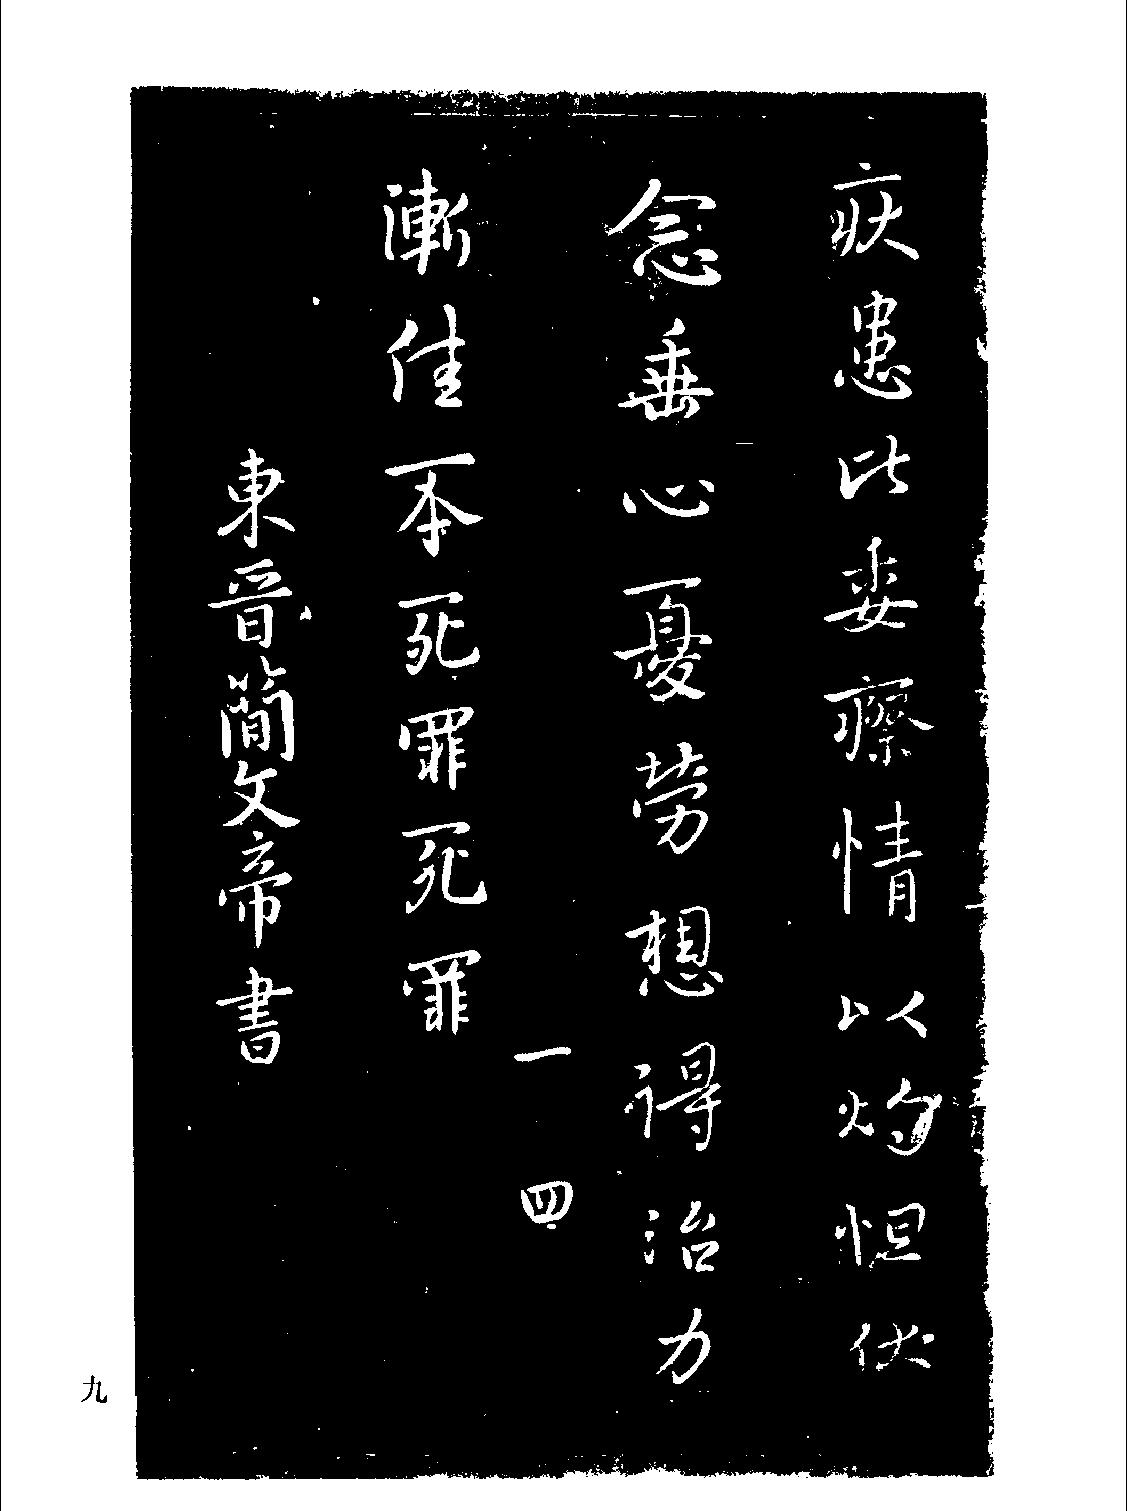 疾患比委瘵情以灼怛伏
念垂心憂勞想得治力
一四
漸佳不死罪死罪
東晉簡文帝書
九